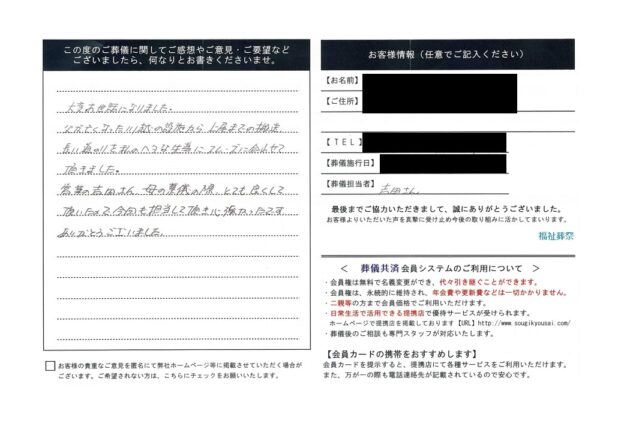 この度のご葬儀に関してご感想やご意見・ご要望など
ございましたら、何なりとお書きくださいませ。
大変お世話になりました。
父が亡くなった川越の設施から上尾までの搬送
長い道のり
頂きました。
営業の吉田さん 母の葬儀の際 とても良くして
頂いたので今回も担当して頂き心強かったです
ありがとうございました。
お客様の貴重なご意見を匿名にて弊社ホームページ等に掲載させていただく場合が
ございます。ご希望されない方は、こちらにチェックをお願いいたします。
お客様情報（任意でご記入ください）
【お名前】
【ご住所】
【ＴＥＬ】
【葬儀施行日】
【葬儀担当者】 吉田さん
最後までご協力いただきまして、誠にありがとうございました。
お客様よりいただいた声を真摯に受け止め今後の取り組みに活かしてまいります。
福祉葬祭
＜ 葬儀共済会員システムのご利用について ＞
・会員権は無料で名義変更ができ、代々引き継ぐことができます。
・会員権は、永続的に維持され、年会費や更新費などは一切かかりません。
・二親等の方まで会員価格でご利用いただけます。
・日常生活で活用できる提携店で優待サービスが受けられます。
ホームページで提携店を掲載しております【URL】http://www.sougikyousai.com/
・葬儀後のご相談も専門スタッフが対応いたします。
【会員カードの携帯をおすすめします】
会員カードを提示すると、提携店にて各種サービスをご利用いただけます。
また、万が一の際も電話連絡先が記載されているので安心です。